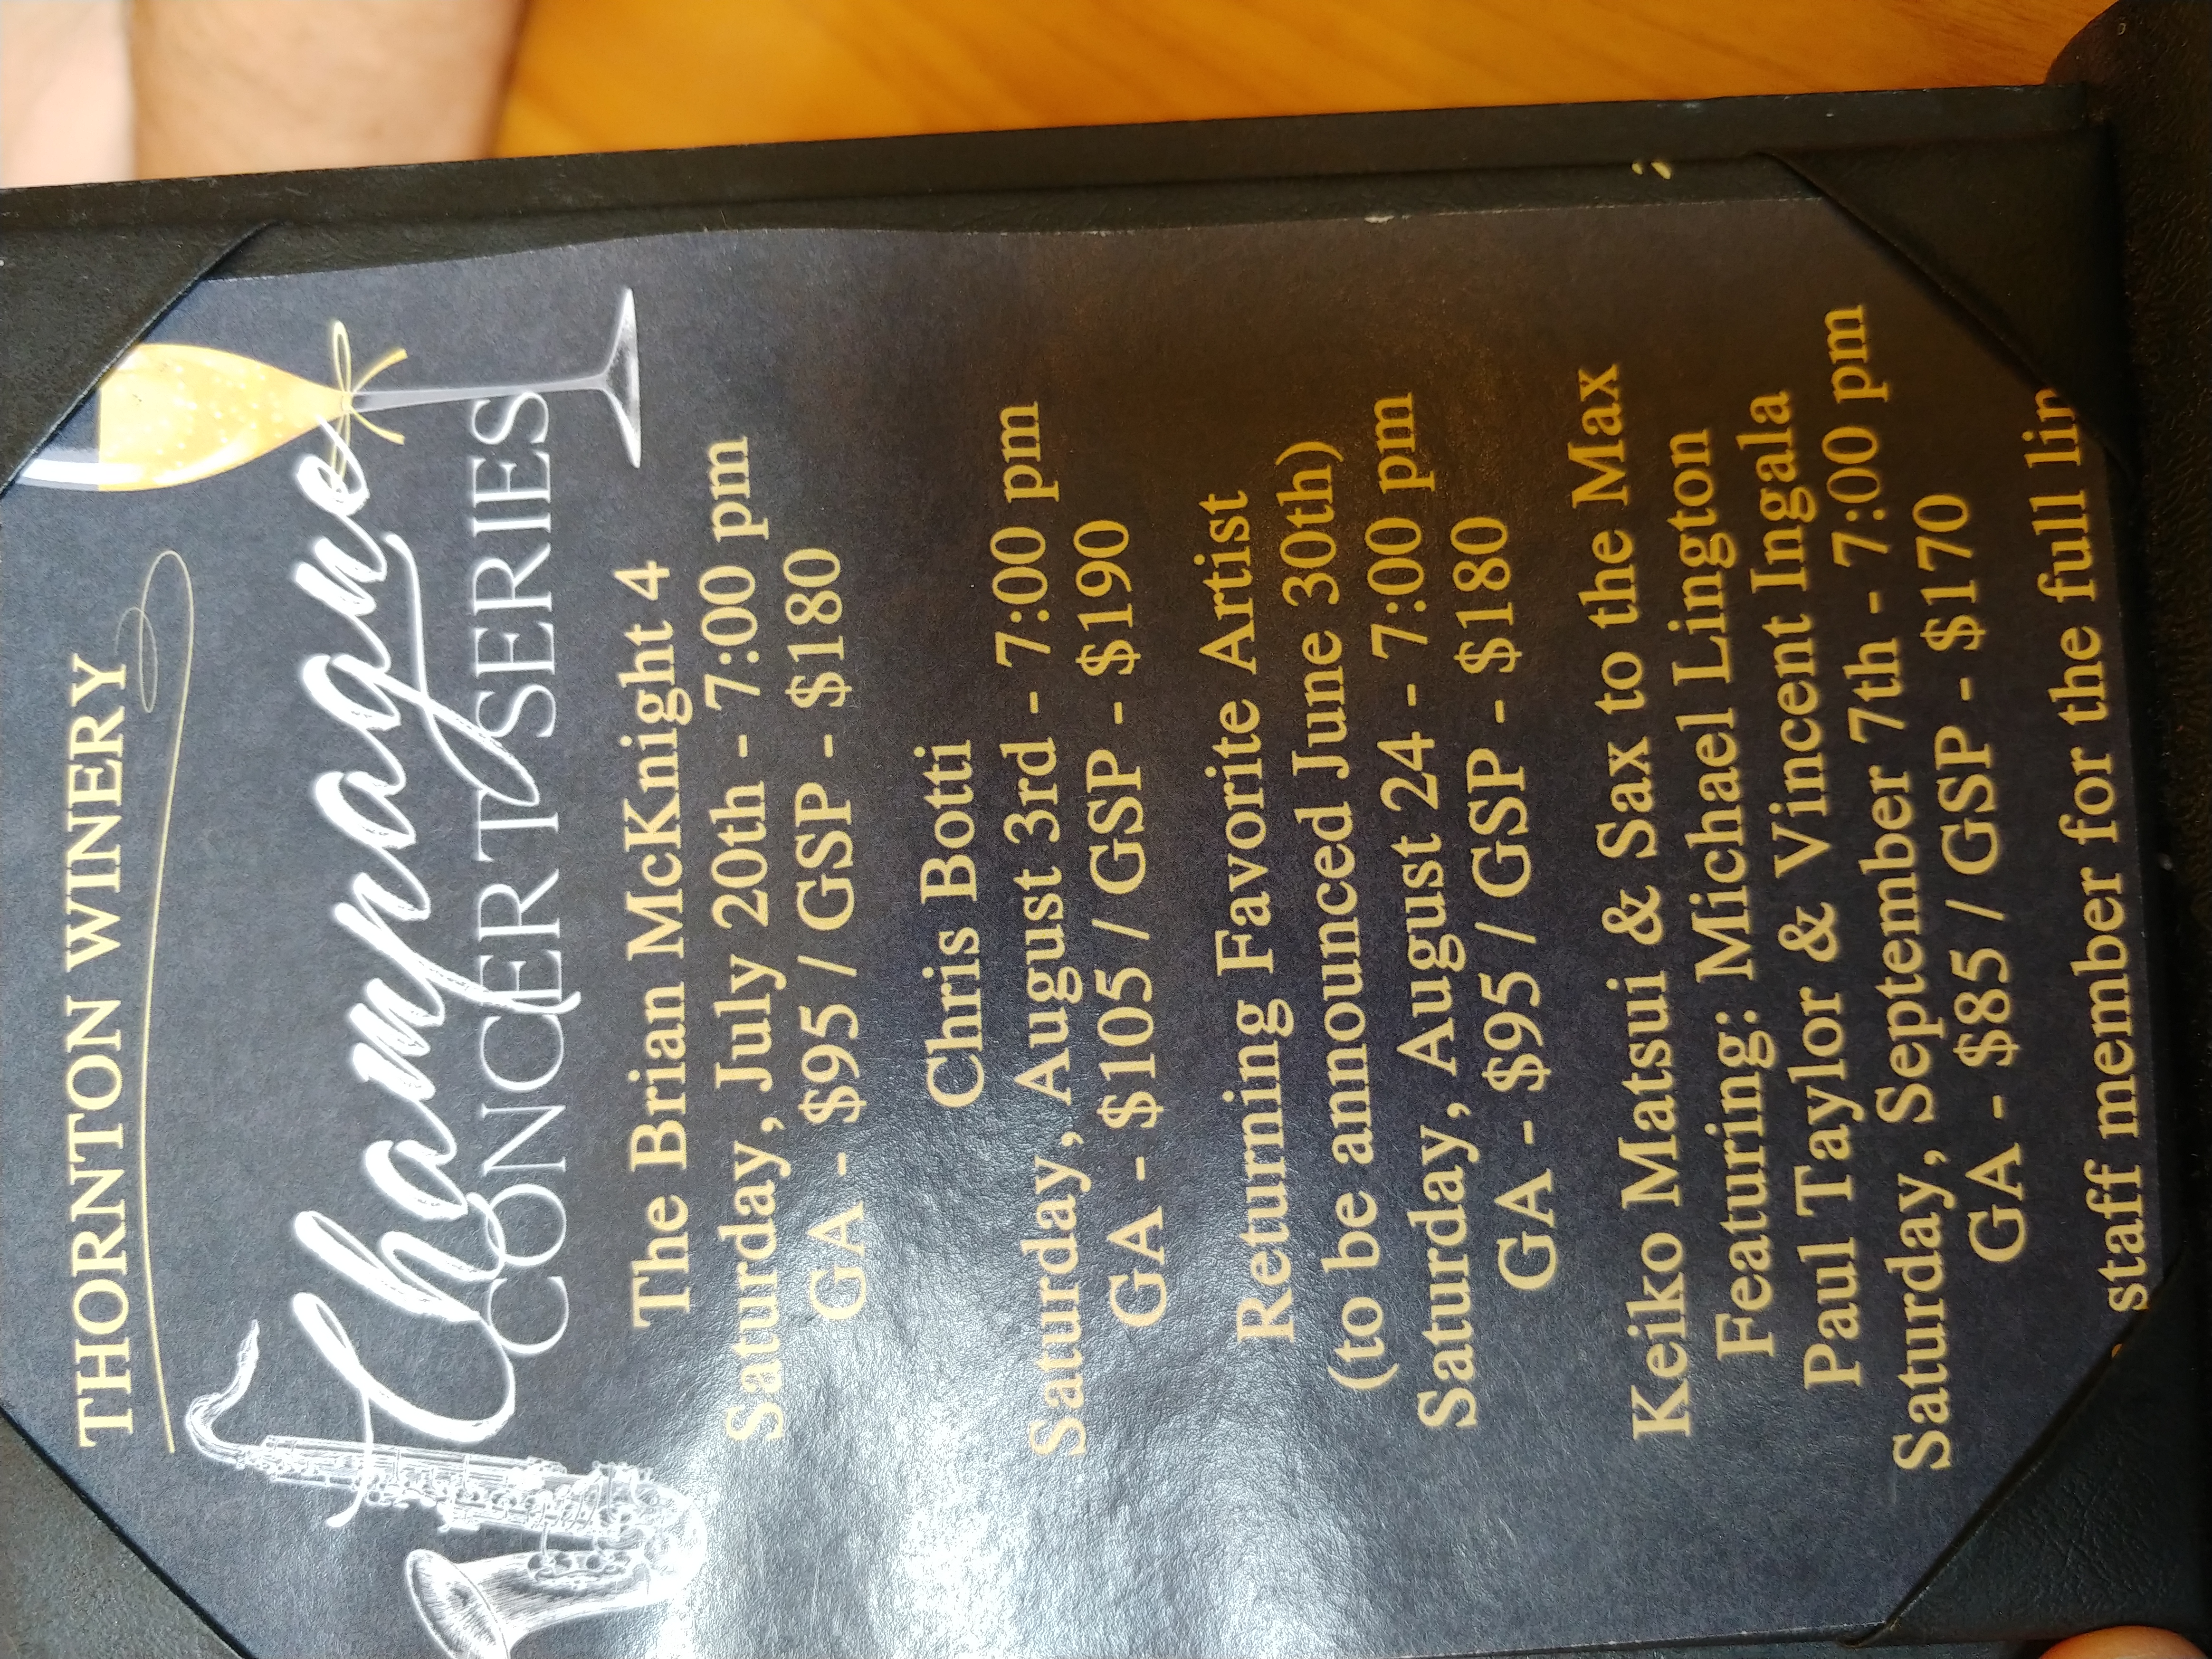 THORNTON WINERY
Champagne
CONCERT SERIES
The Brian McKnight 4
Saturday, July 20th - 7:00 pm
GA - $95 / GSP - $180
Chris Botti
Saturday, August 3rd - 7:00 pm
GA - $105 / GSP - $190
Returning Favorite Artist
(to be announced June 30th)
Saturday, August 24 - 7:00 pm
GA - $95 / GSP - $180
Keiko Matsui & Sax to the Max
Featuring: Michael Lington
Paul Taylor & Vincent Ingala
Saturday, September 7th - 7:00 pm
GA - $85 / GSP - $170
staff member for the full